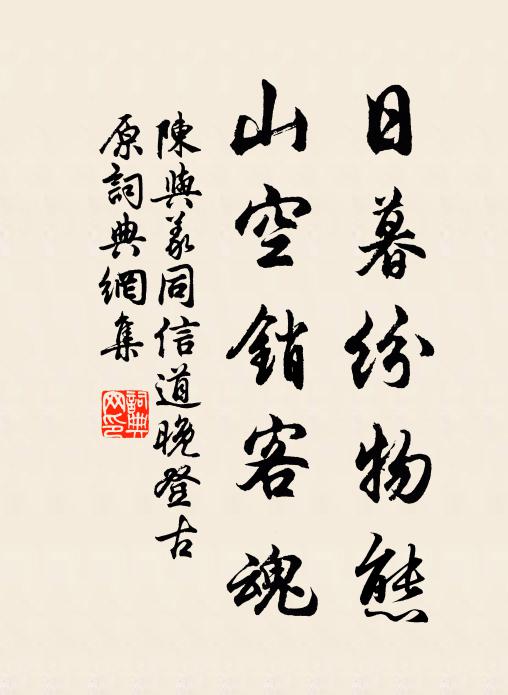 日暮紛物態
山空銷客魂
陳與義同信道晚登古
原詞典網集
詞典网印